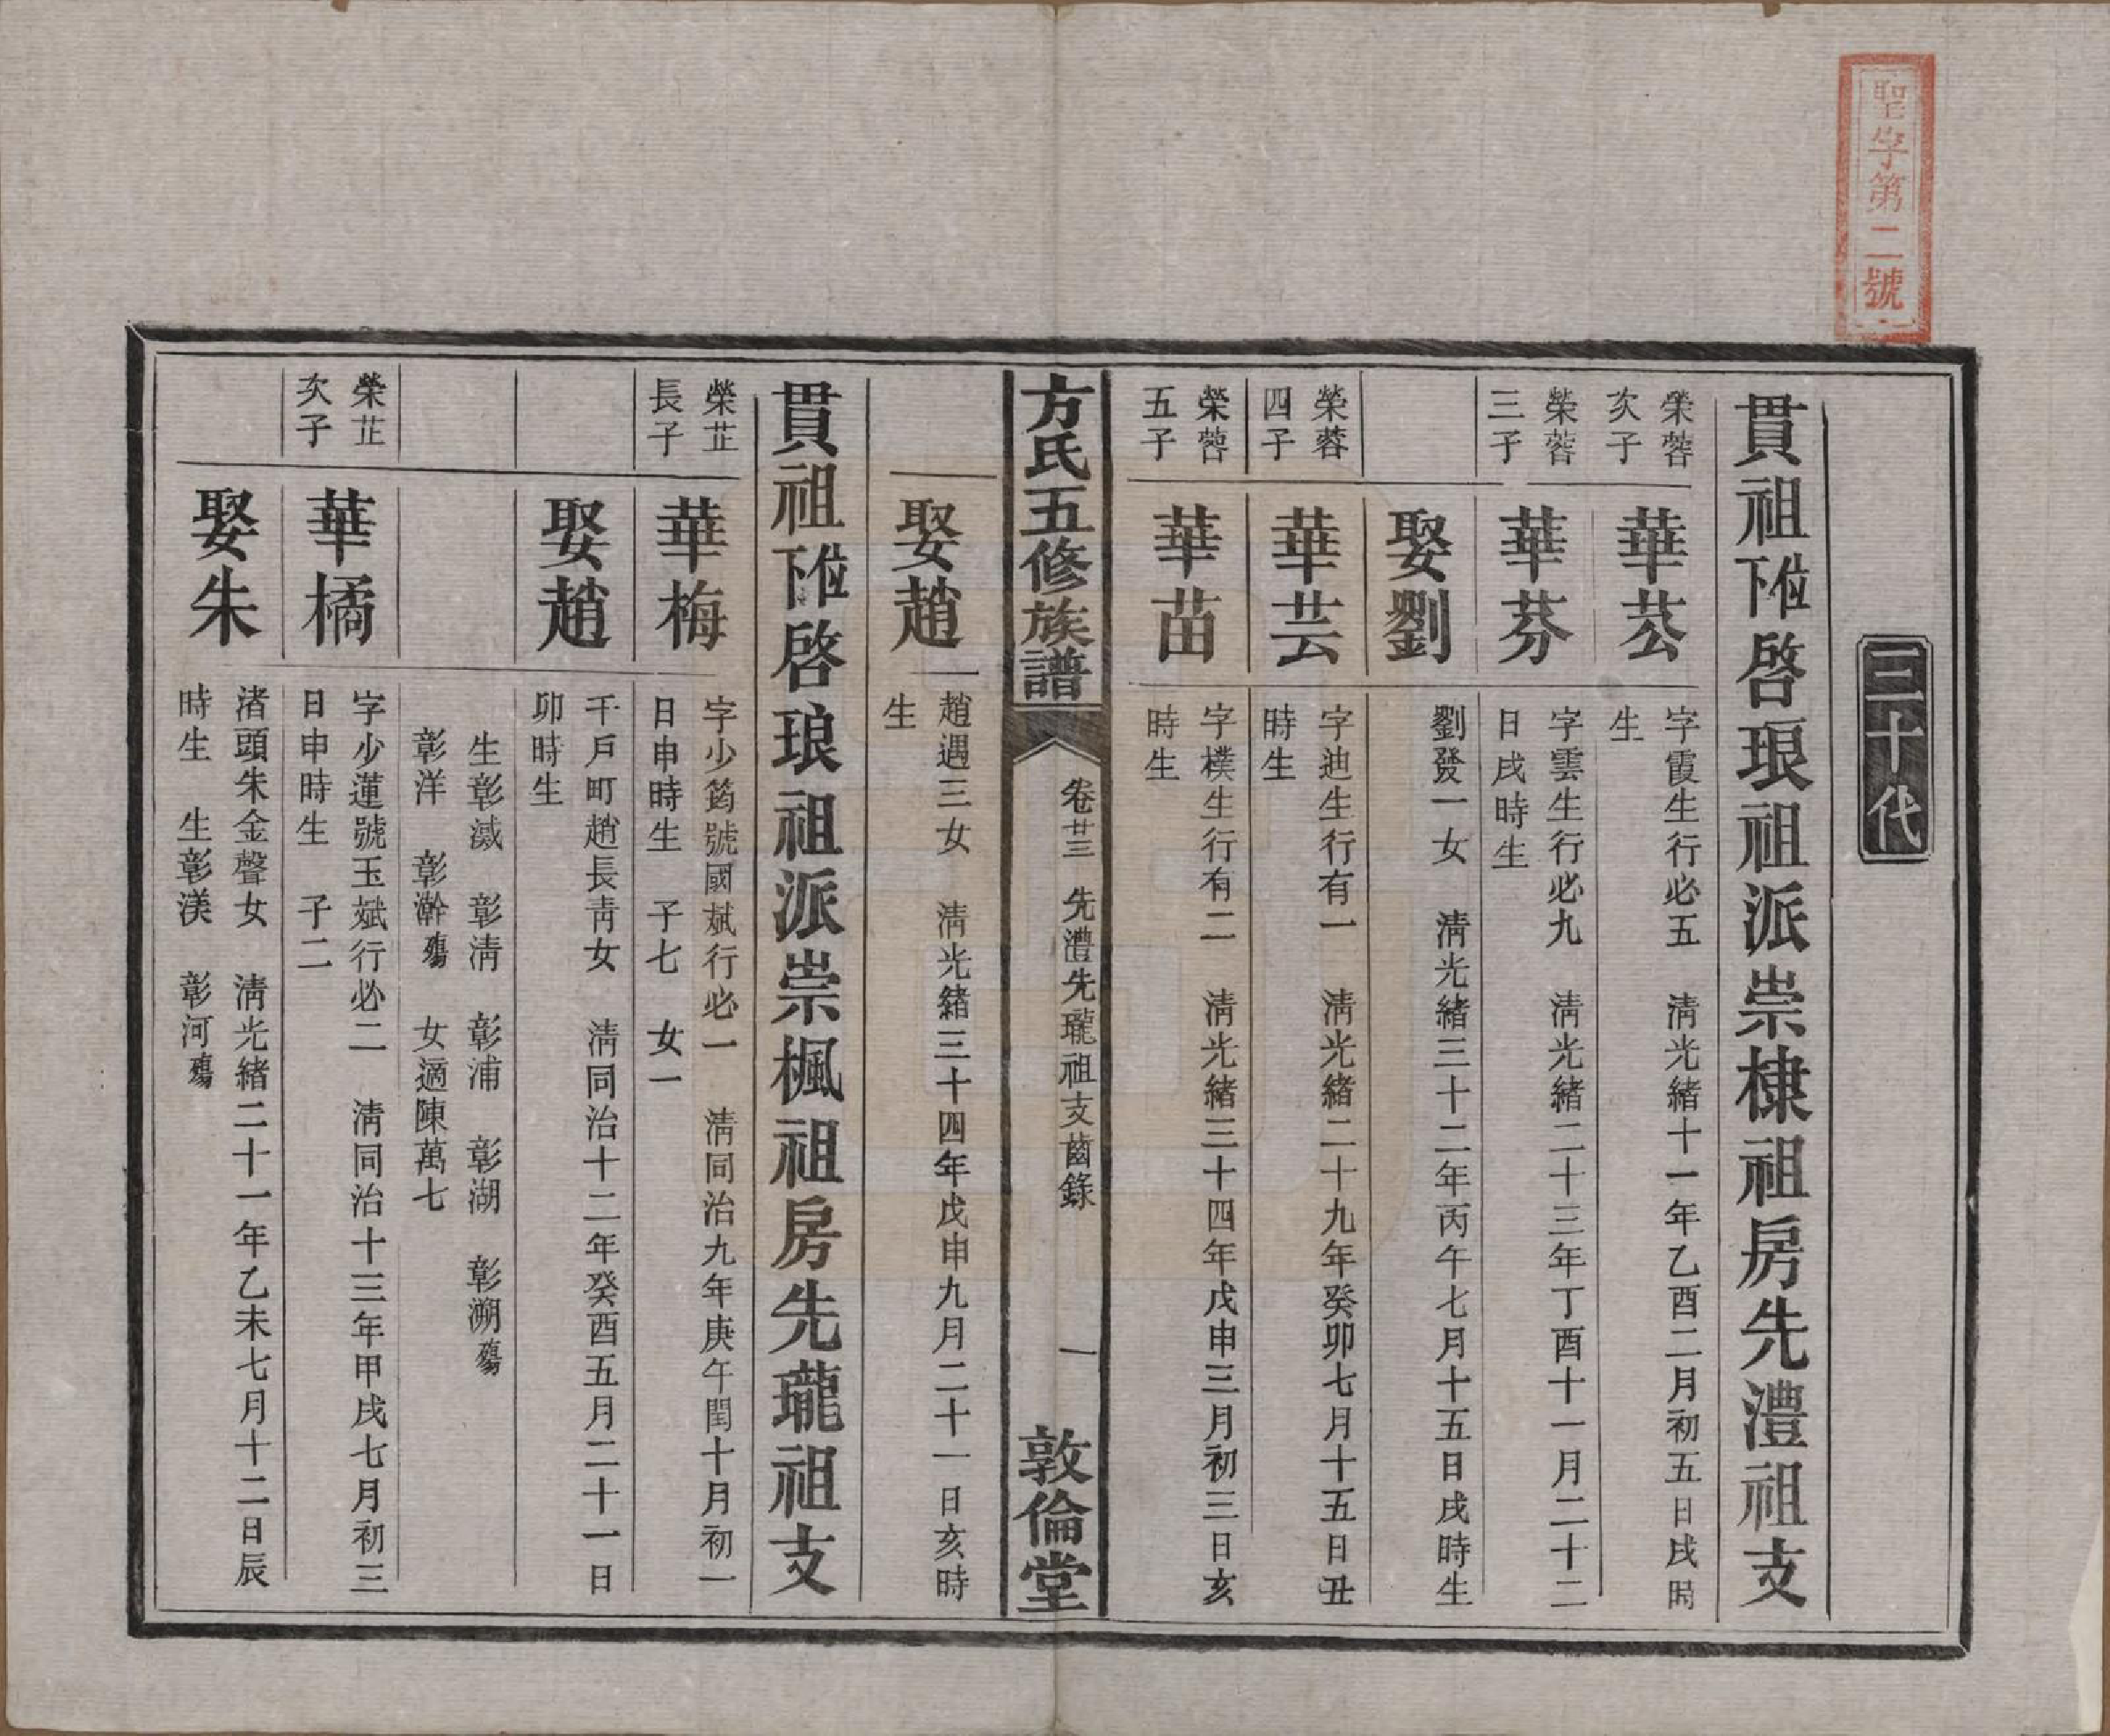 聖字第二號
三十代
貫祖下位啓琅祖派崇棣祖房先澧祖支
榮蓉
次子
華苾
字霞生行必五　淸光緒十一年乙酉二月初五日戌時
生
榮蓉
三子
華芬
字雲生行必九　淸光緒二十三年丁酉十一月二十二
日戌時生
娶劉
劉發一女　淸光緒三十二年丙午七月十五日戌時生
榮蓉
四子
華芸
字迪生行有一　淸光緒二十九年癸卯七月十五日丑
時生
榮蓉
五子
華苗
字樸生行有二　淸光緒三十四年戊申三月初三日亥
時生
方氏五修族譜
卷廿三　先澧先瓏祖支齒錄
一
敦倫堂
娶趙
趙遇三女　淸光緒三十四年戊申九月二十一日亥時
生
貫祖下位啓琅祖派崇楓祖房先瓏祖支
榮芷
長子
華梅
字少筠號國斌行必一　淸同治九年庚午閏十月初一
日申時生　子七　女一
娶趙
千戶町趙長靑女　淸同治十二年癸酉五月二十一日
卯時生
生彰濊　彰淸　彰浦　彰湖　彰溯殤
彰洋　彰澣殤　女適陳萬七
榮芷
次子
華橘
字少蓮號玉斌行必二　淸同治十三年甲戌七月初三
日申時生　子二
娶朱
渚頭朱金聲女　淸光緒二十一年乙未七月十二日辰
時生　生彰渼　彰河殤